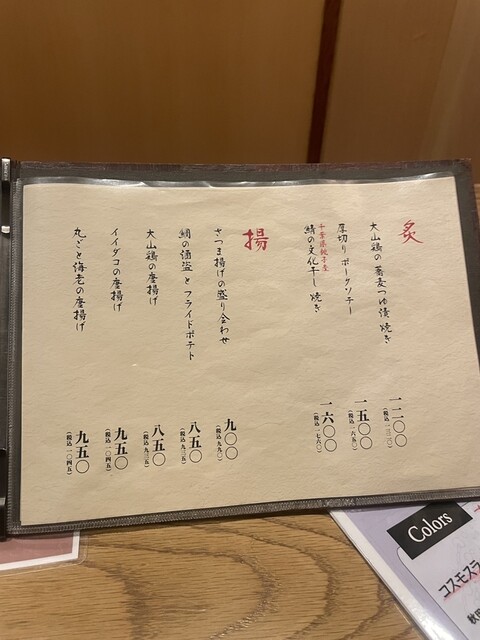 炙
大山鶏の蕎麦つゆ漬焼き
一二〇〇
(税込一三二〇)
厚切りポークソテー
一五〇〇
(税込一六五〇)
千葉県銚子産
鯖の文化干し焼き
一六〇〇
(税込一七六〇)
揚
さつま揚げの盛り合わせ
九〇〇
(税込九九〇)
鯛の酒盗とフライドポテト
八五〇
(税込九三五)
大山鶏の唐揚げ
八五〇
(税込九三五)
イイダコの唐揚げ
九五〇
(税込一〇四五)
丸ごと海老の唐揚げ
九五〇
(税込一〇四五)
Colors
コスモスラ
秋田